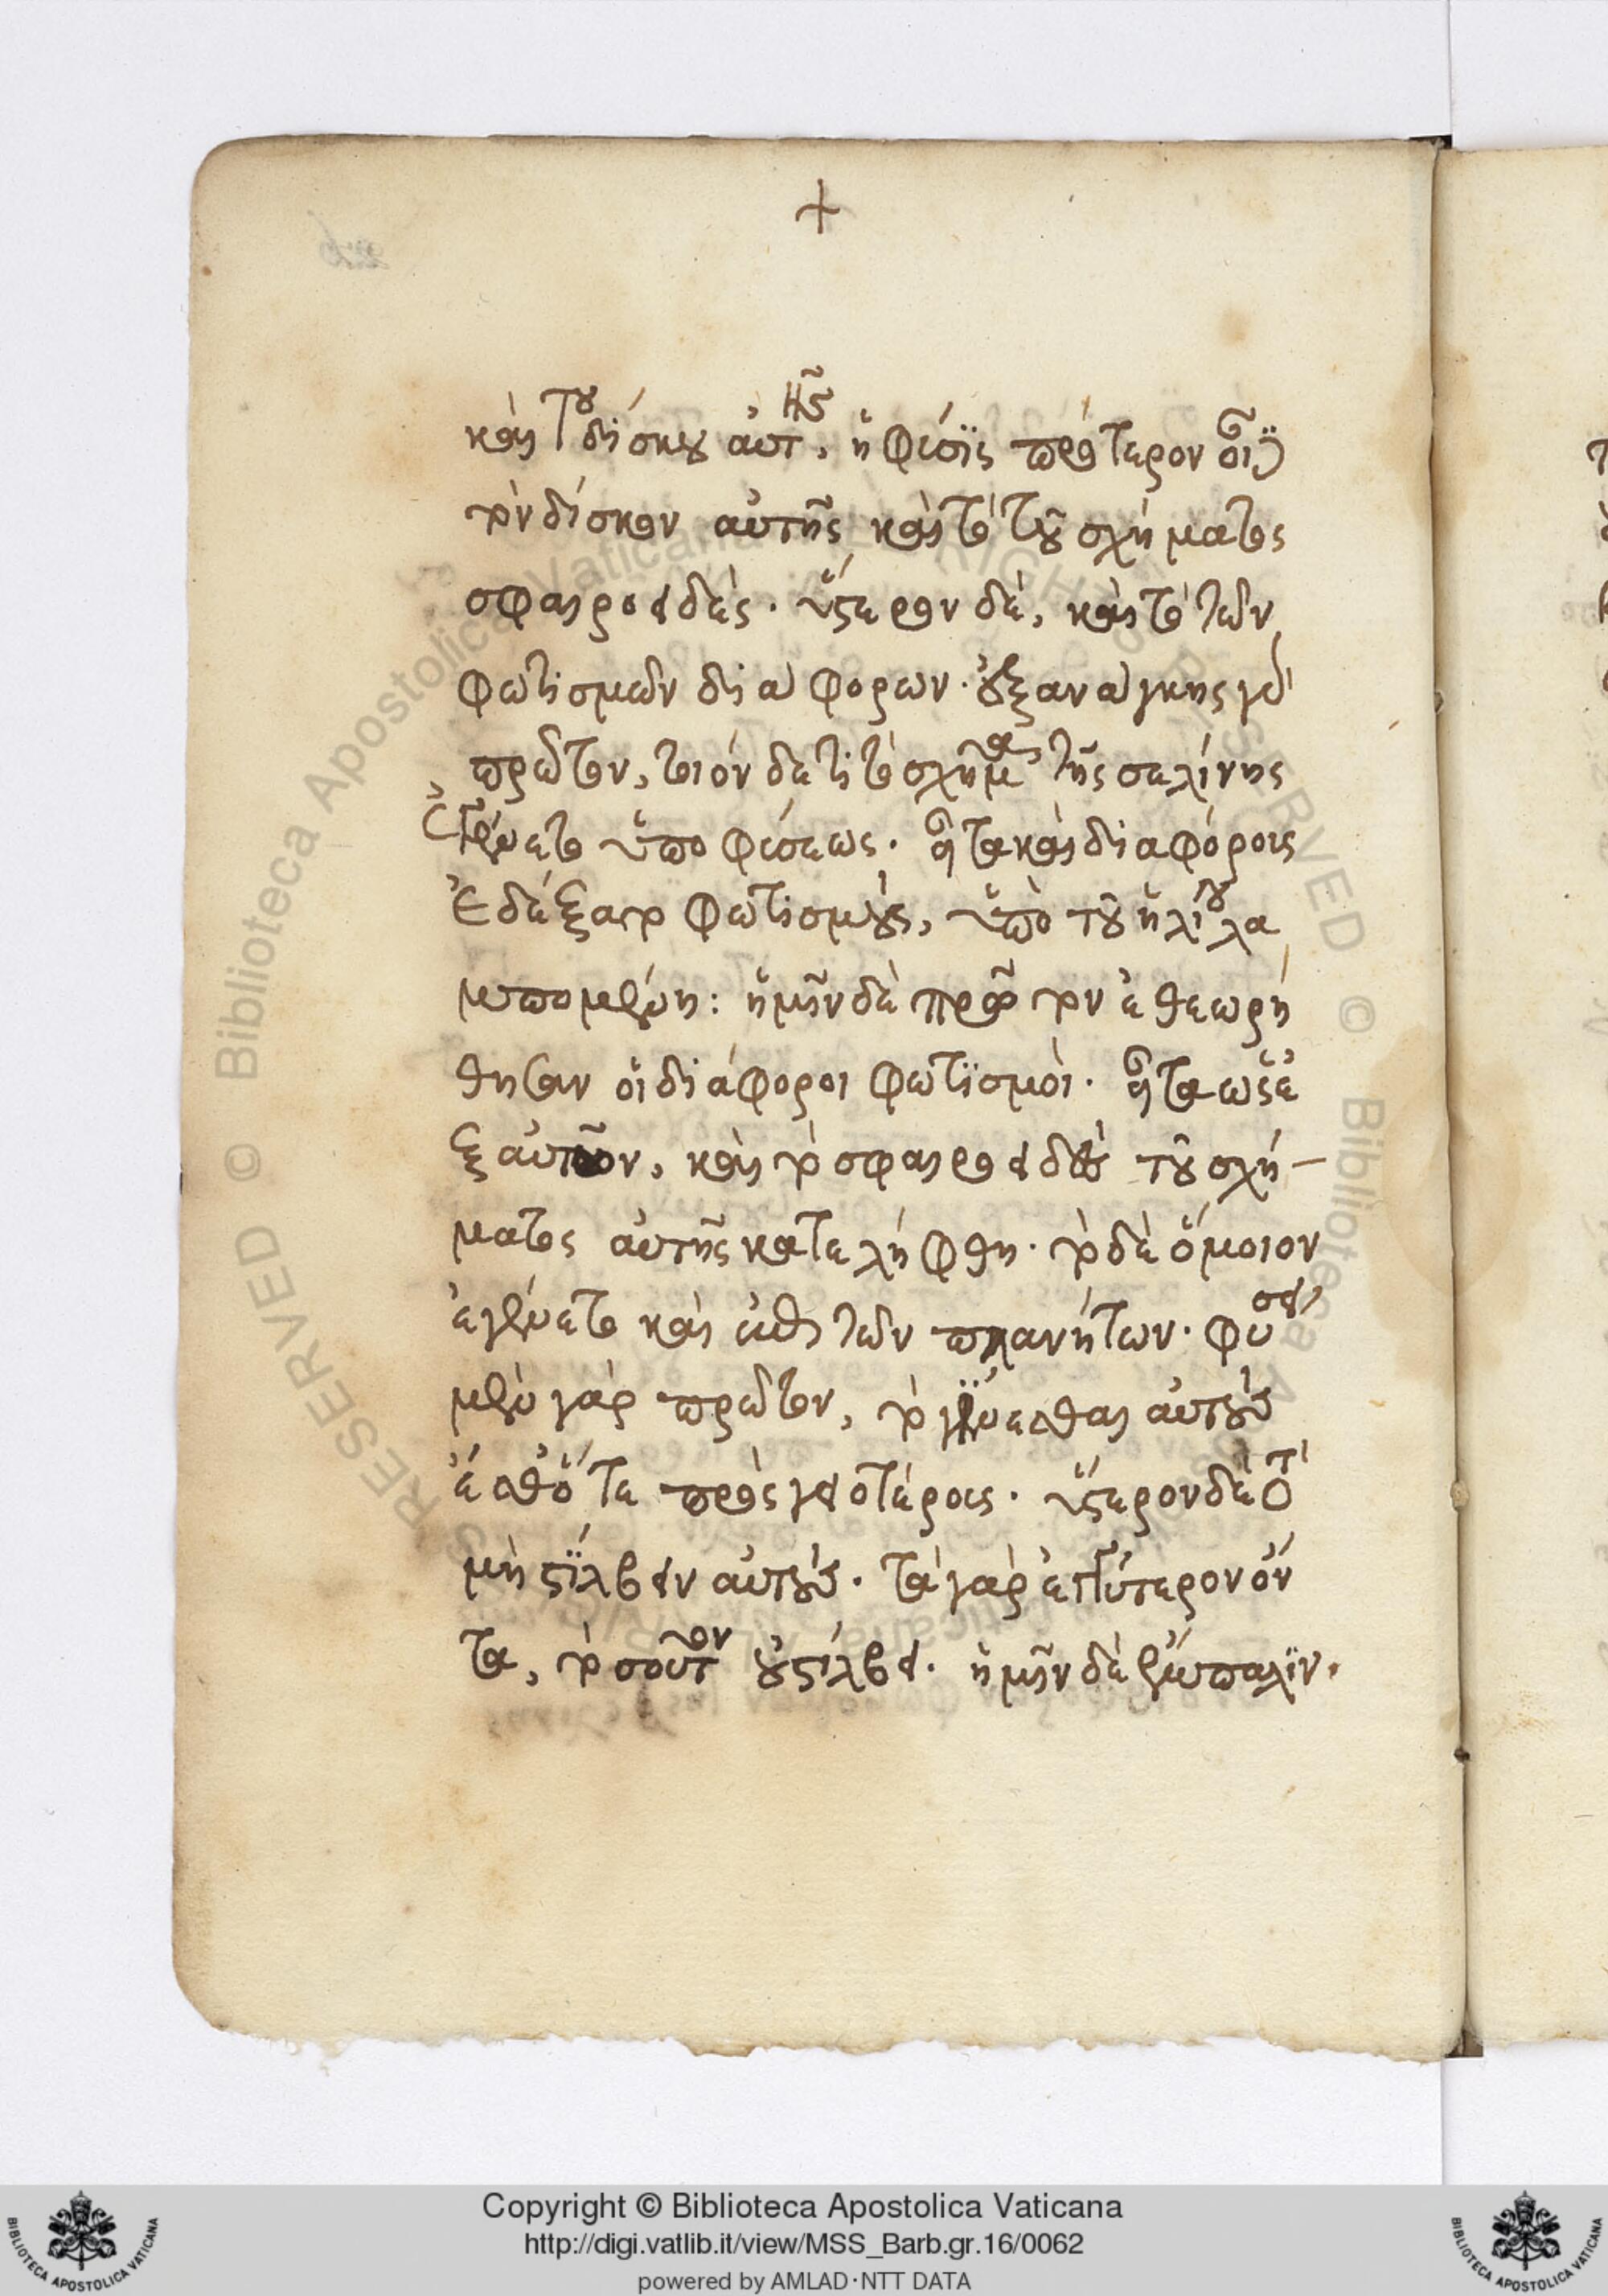 +
καὶ τοῦ δίσκου αὐτῆς, ἡ φύσϊς πρότερον οἶδε
τὸν δίσκον αὐτῆς καὶ τὸ τοῦ σχήματος
σφαιροειδὲς. ὕστερον δὲ, καὶ τὸ τῶν
φωτισμῶν διάφορων. ἐξ ανάγκης γὰρ
πρῶτον, τοιόν δε τι τὸ σχῆμα τῆς σελίνης
ἐγένετο ὑπο φύσεως. εἶτα καὶ διαφόροις
ἐδέξατο φωτισμοὺς, ὑπὸ τοῦ ἡλίου λα
μπομένη: ἡμῖν δὲ πρῶτον ἐθεωρή
θησαν οἱ διάφοροι φωτϊσμοὶ. εἶτα ὡς ἐ
ξ αὐτῶν, καὶ τὸ σφαιροειδὲς τοῦ σχή-
ματος αὐτῆς κατελήφθη. τὸ δὲ ὅμοιον
ἐγένετο καὶ ἐπὶ τῶν πλανήτων. φύσει
μὲν γὰρ πρῶτον, τὸ γίνεσθαι αὐτοὺς
ἔσθ' ὅτε προσγειοτέροις. ὕστερον δὲ τὸ
μὴ στίλβειν αὐτοὺς. τὰ γὰρ ἐγγύτερον ὄν
τα, τοσοῦτον οὐ στίλβει. ἡμῖν δὲ ἔμπαλϊν.
Copyright © Biblioteca Apostolica Vaticana
http://digi.vatlib.it/view/MSS_Barb.gr.16/0062
powered by AMLAD·NTT DATA